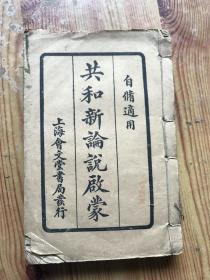 自脩適用
共和新論說啟蒙
上海會文堂書局發行